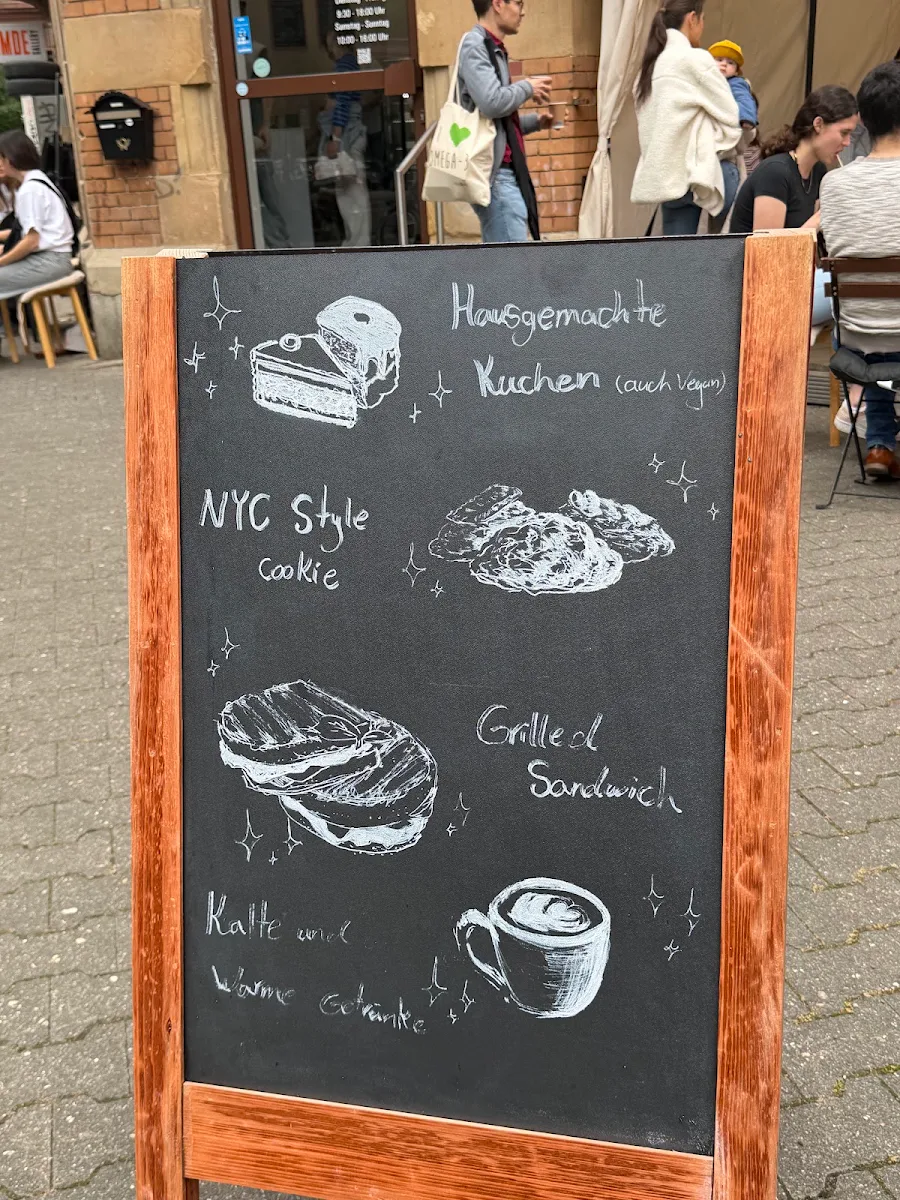 MDE
9:30 - 18:00 Uhr
Samstag - Sonntag
10:00 - 18:00 Uhr
OMEGA-3
Hausgemachte
Kuchen (auch Vegan)
NYC Style
Cookie
Grilled
Sandwich
Kalte und
Warme Getränke